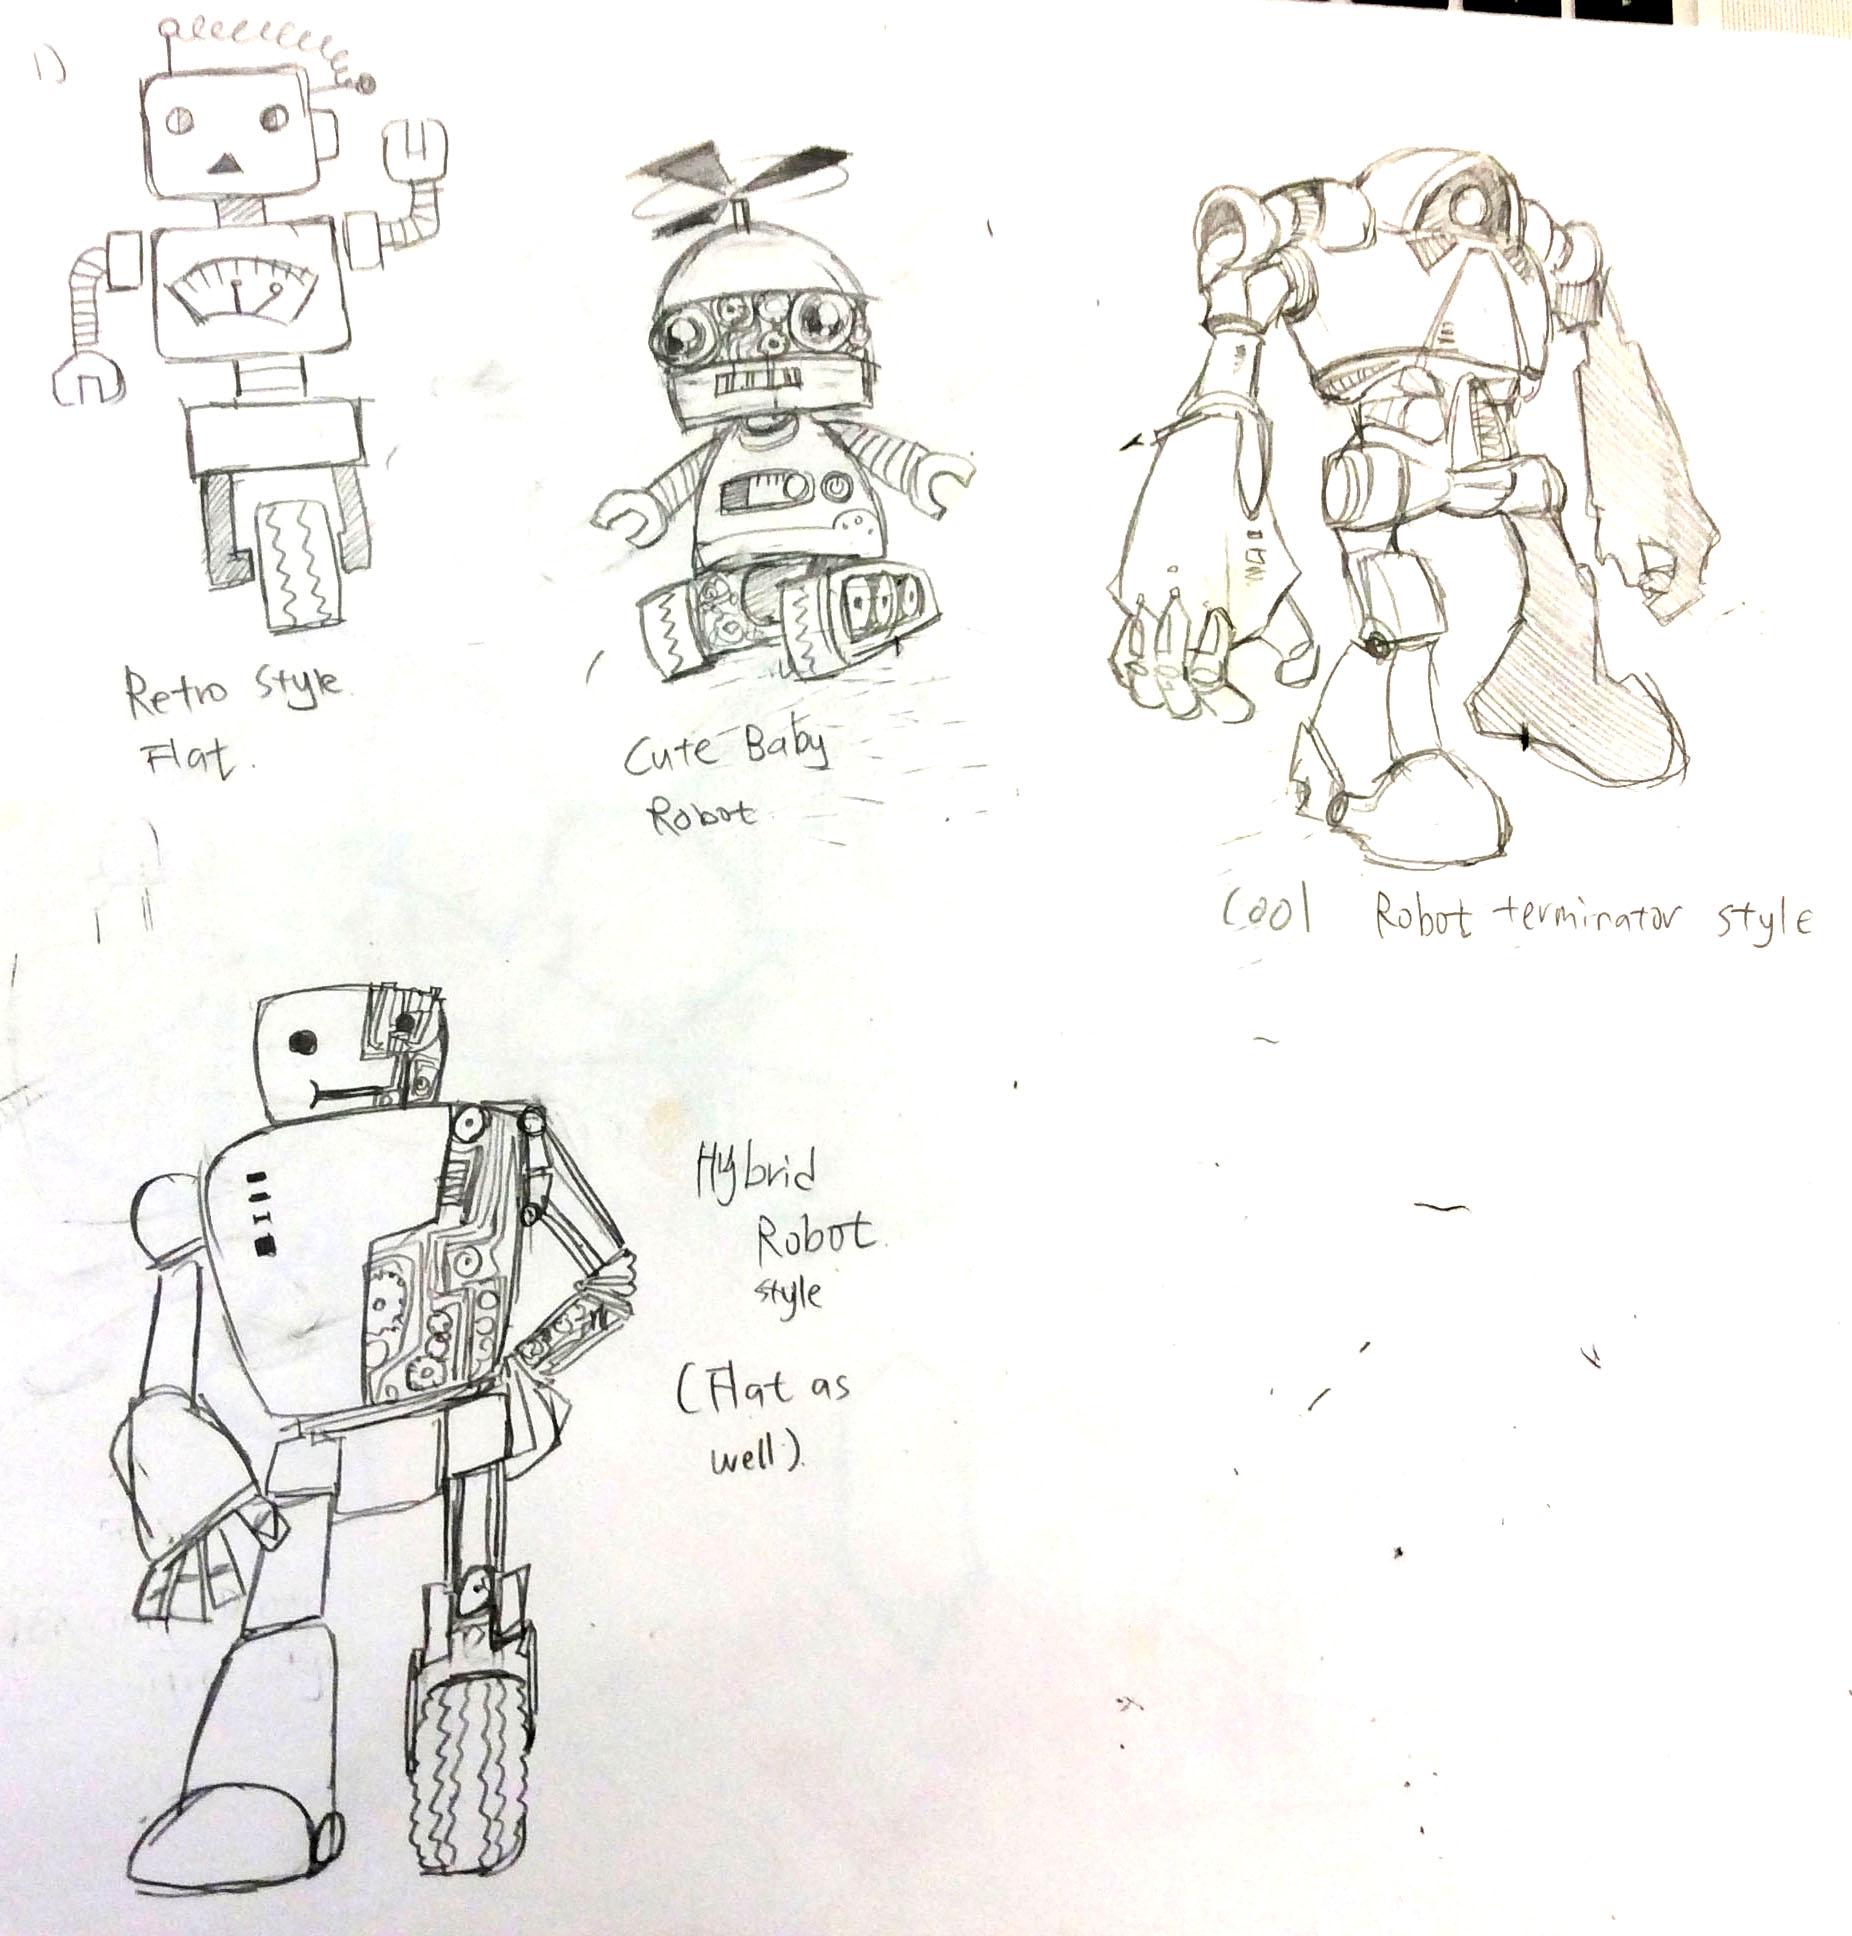 1)
Retro Style
Flat.
Cute Baby
Robot
Cool Robot terminator style
Hybrid
Robot.
style
(Flat as
well).